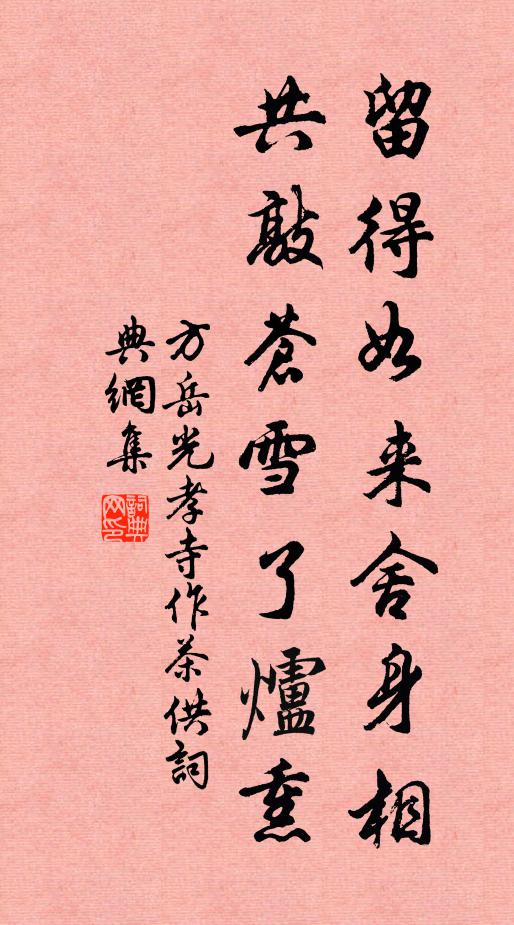 留得如来舍身相
共敲蒼雪了爐熏
方岳光孝寺作茶供詞
典網集
詞典网印